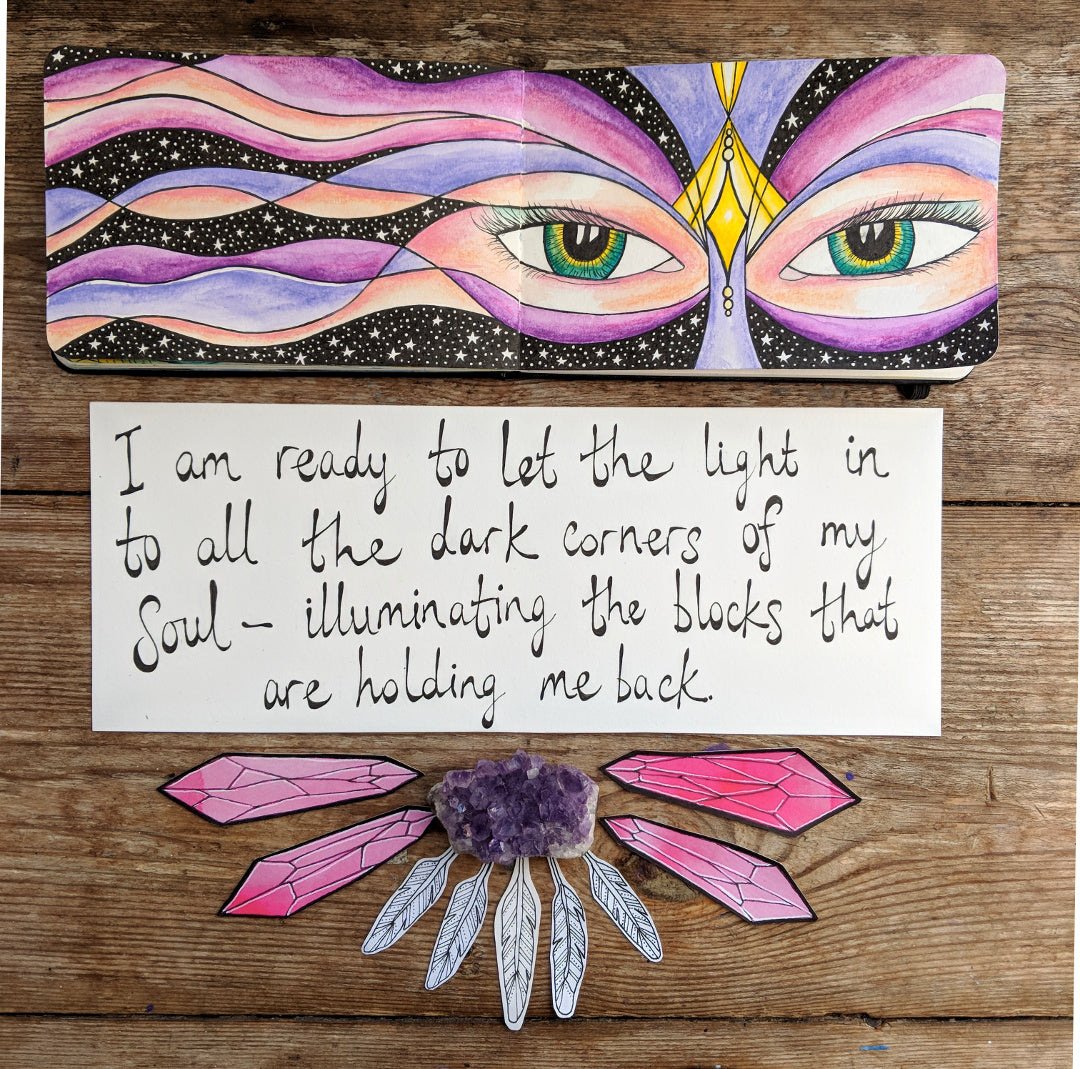 I am ready to let the light in
to all the dark corners of my
Soul – illuminating the blocks that
are holding me back.